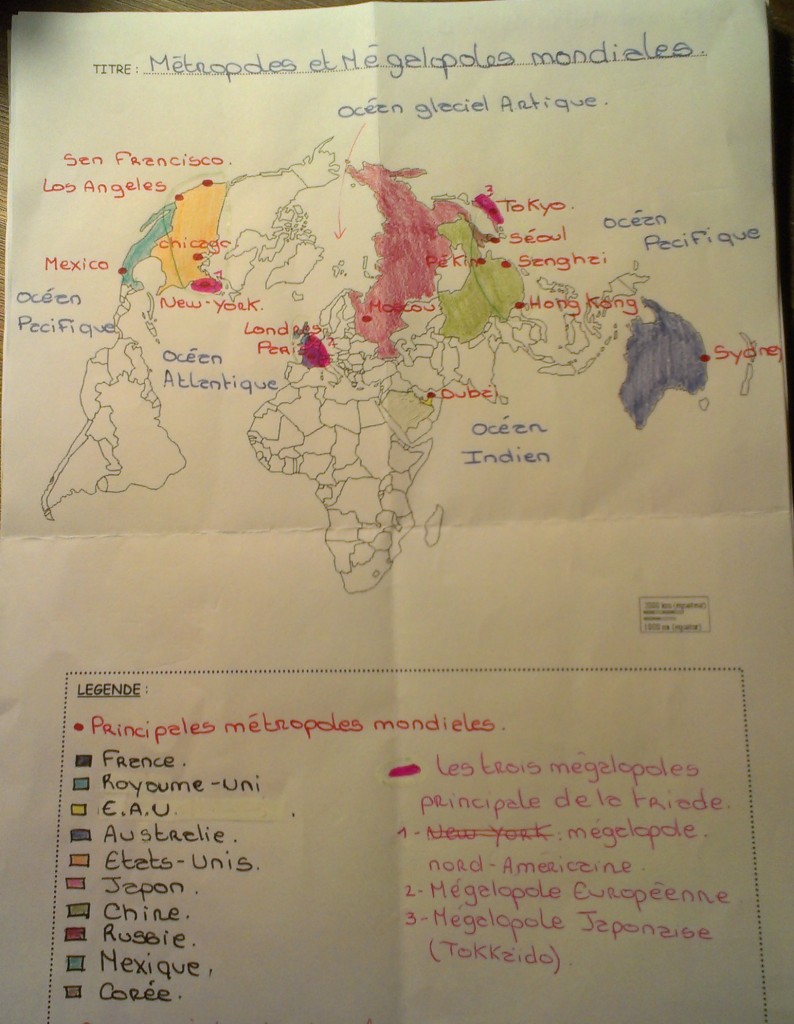 TITRE : Métropoles et Mégalopoles mondiales.
Océan glaciel Artique.
San Francisco.
Los Angeles
3
Tokyo.
Océan
Pacifique
Séoul
Chicago
Pékin
Sanghai
Mexico
1
New-York.
Océan
Pacifique
Moscou
Hong Kong
Londres
Paris
2
Océan
Atlantique
Sydney
Dubaï
Océan
Indien
LEGENDE :
Principales métropoles mondiales.
France.
Royaume-Uni
E.A.U.
Australie.
Etats-Unis.
Japon.
Chine.
Russie.
Mexique.
Corée.
Les trois mégalopoles
principale de la triade.
1- New York : mégalopole.
nord-Américaine.
2- Mégalopole Européenne
3- Mégalopole Japonaise
(Tokkaido).